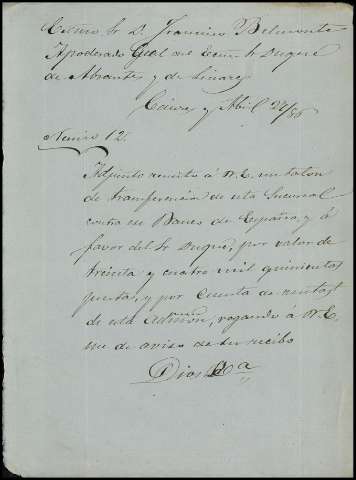 Excmo Sr D. Francisco Belmonte
Apoderado Gral del Excmo Sr Duque
de Abrantes y de Linares
Cáceres y Abril 27/86
Numro 12.
Adjunto remito á V.E. un talon
de transferencia de esta Sucursal
contra el Banco de España, y á
favor del Sr Duque, por valor de
treinta y cuatro mil quinientas
pesetas, y por cuenta de rentas
de esta Admon, rogando á V.E.
me de aviso de su recibo
Dios &a